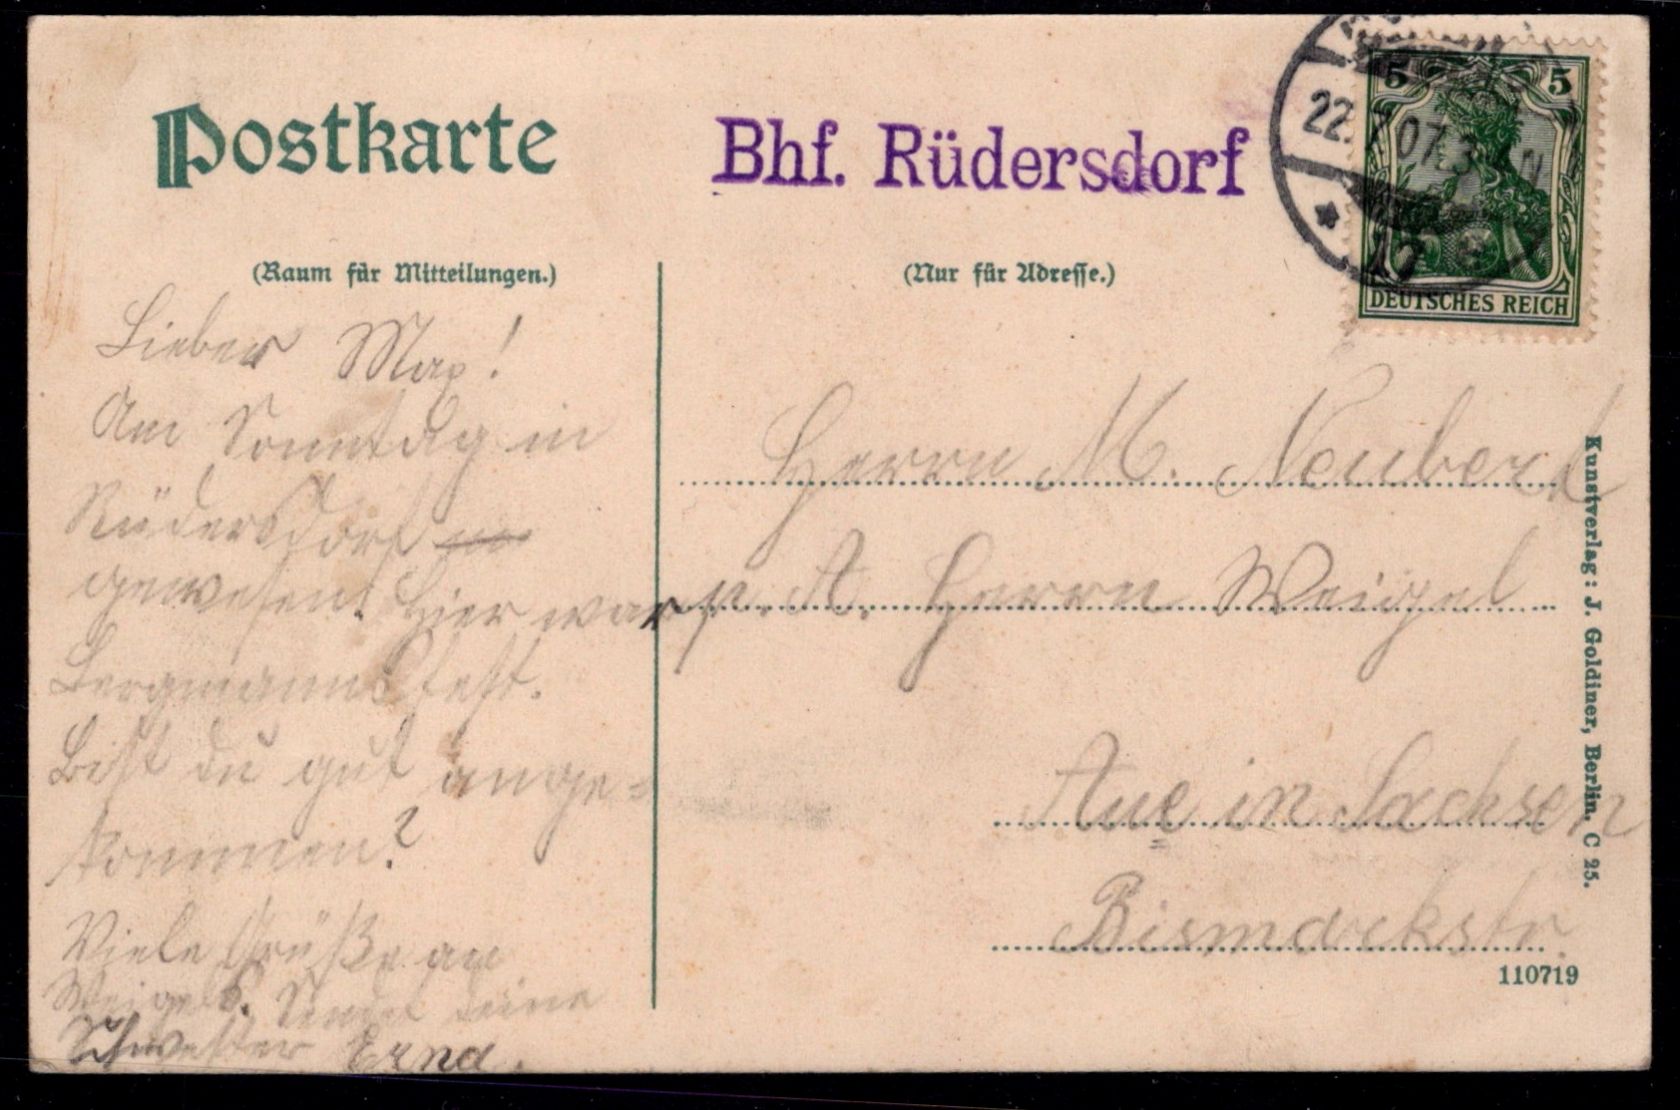 Postkarte
Bhf. Rüdersdorf
22.7.07.3
5 5
DEUTSCHES REICH
(Raum für Mitteilungen.)
(Nur für Adresse.)
Lieber Max!
Am Sonntag in
Rüdersdorf
gewesen. Hier war
Bergmannsfest.
Bist du gut ange=
kommen?
Viele Grüße an
Weigels. Sendet deine
Schwester Erna.
Herrn M. Neubert
p. A. Herrn Weigel
Aue in Sachsen
Bismarckstr.
110719
Kunstverlag: J. Goldiner, Berlin. C 25.